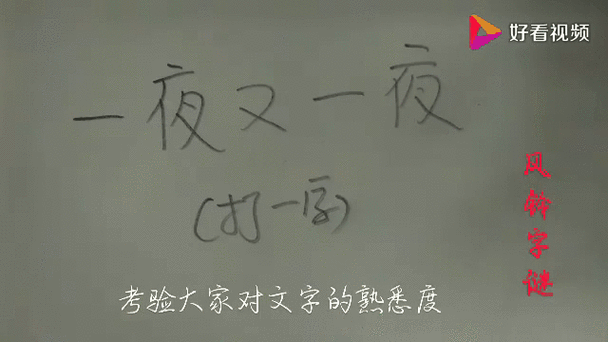 好看视频
一夜又一夜
(打一字)
风铃字谜
考验大家对文字的熟悉度